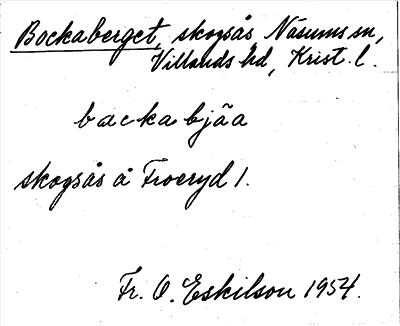 Bockaberget, skogsås Näsums sn,
Villands hd, Krist. l.
backabjäa
skogsås å Froeryd 1.
Fr. O. Eskilson 1954.